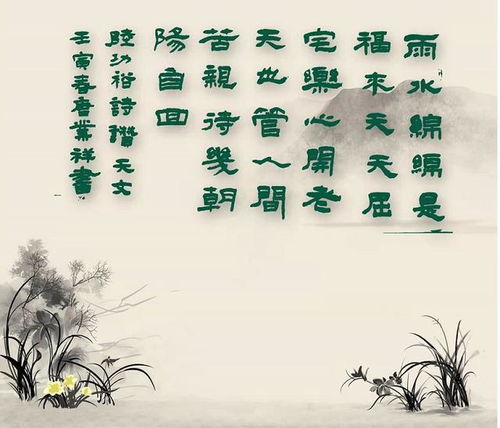 雨水綿綿是
福來天天屈
宅樂心開老
天也管人間
苦親待幾朝
陽自回
陸功裕詩讚天文
壬寅春唐業祥書